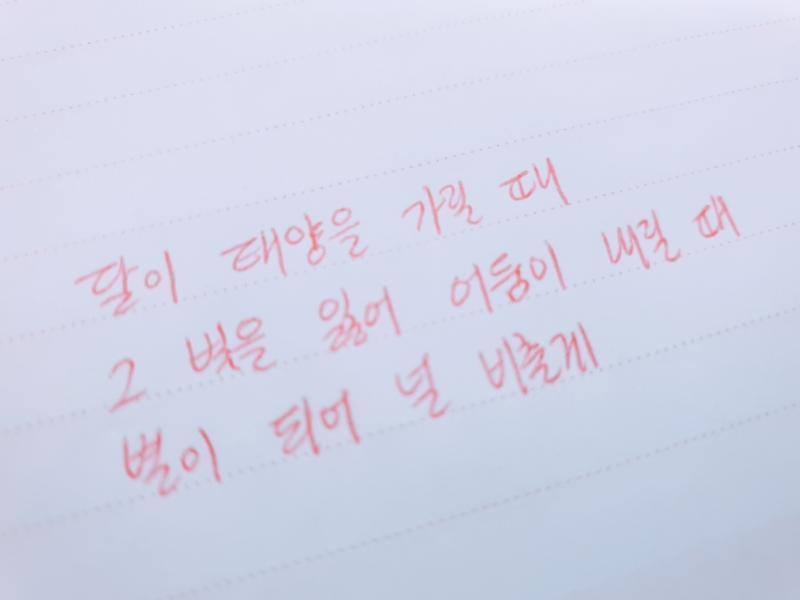 달이 태양을 가릴 때
그 빛을 잃어 어둠이 내릴 때
별이 되어 널 비출게